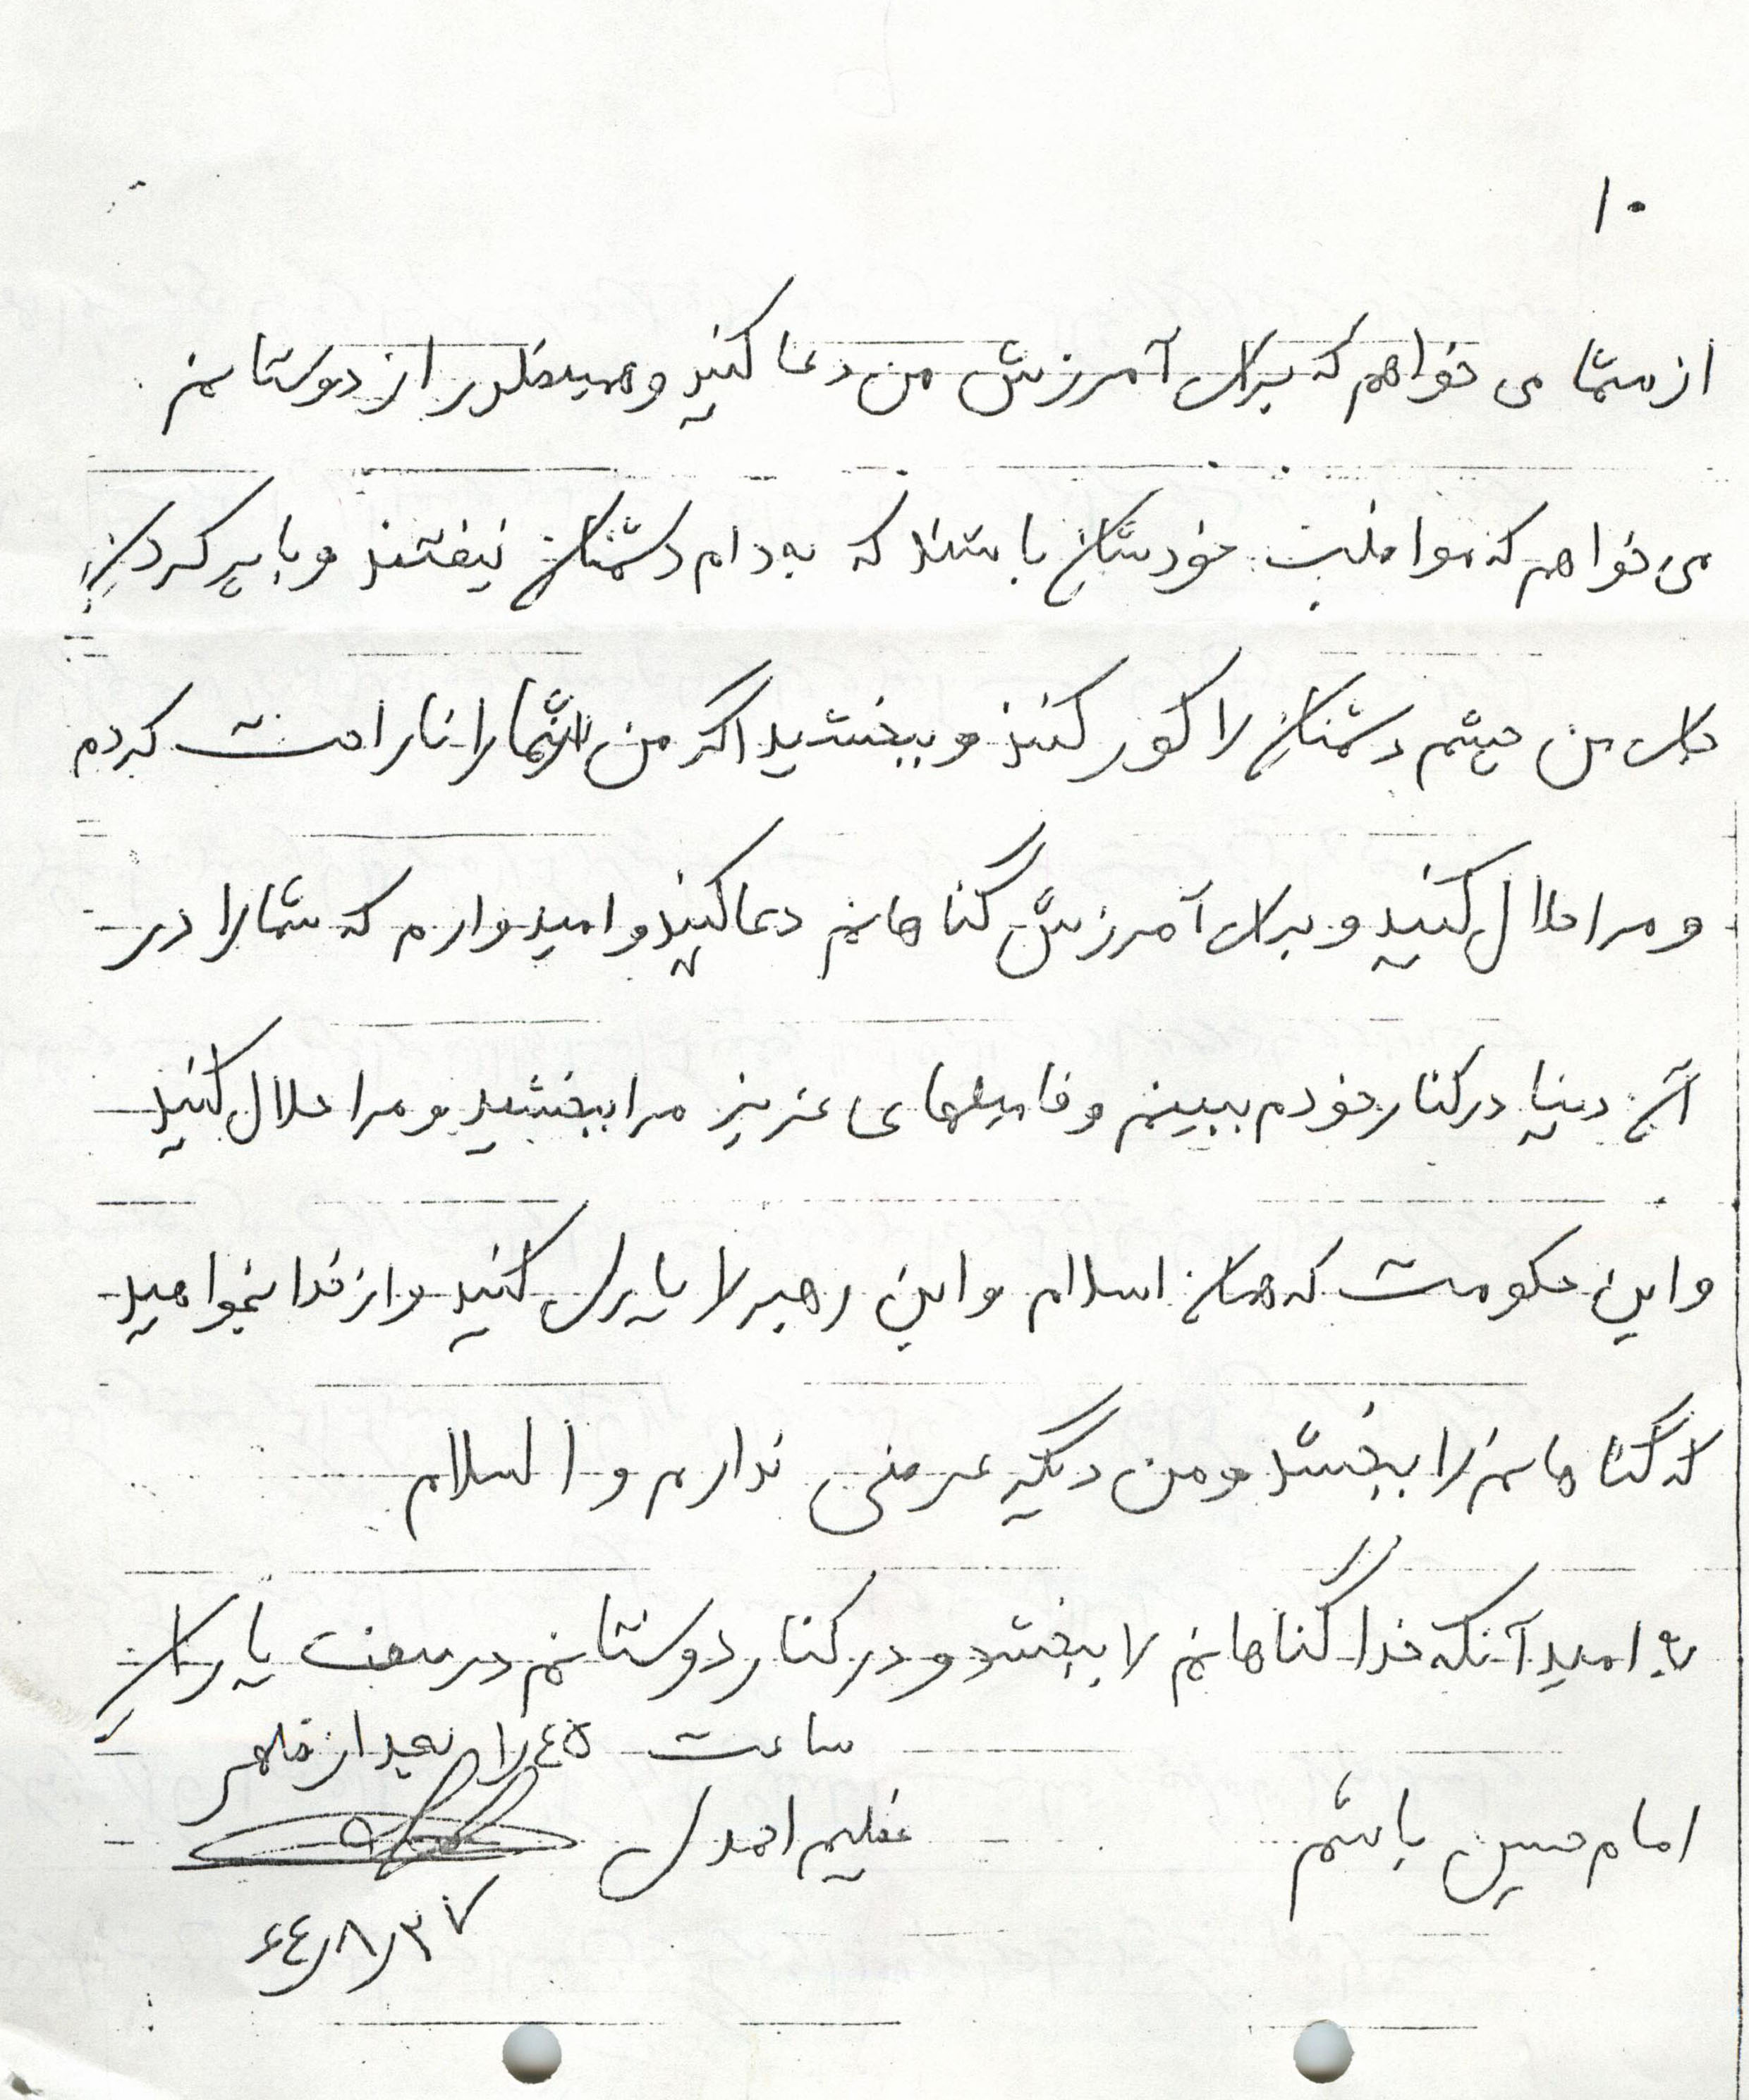 ۱۰
از شما می خواهم که برای آمرزش من دعا کنید و همینطور از دوستانم
می خواهم که مواظب خودشان باشند که به دام دشمنان نیفتند و با پر کردن
جای من چشم دشمنان را کور کنند و ببخشید اگر من شما را ناراحت کردم
و مرا حلال کنید و برای آمرزش گناهانم دعا کنید و امیدوارم که شما را در
آن دنیا در کنار خودم ببینم و فامیلهای عزیز مرا ببخشید و مرا حلال کنید
و این حکومت که همان اسلام و این رهبر را یاری کنید و از خدا بخواهید
که گناهانم را ببخشد و من دیگه عرضی ندارم والسلام
به امید آنکه خدا گناهانم را ببخشد و در کنار دوستانم در صف یاران
ساعت ۱٫۴۵ بعد از ظهر
امام حسین باشم احمدی
۶۴٫۸٫۲۷